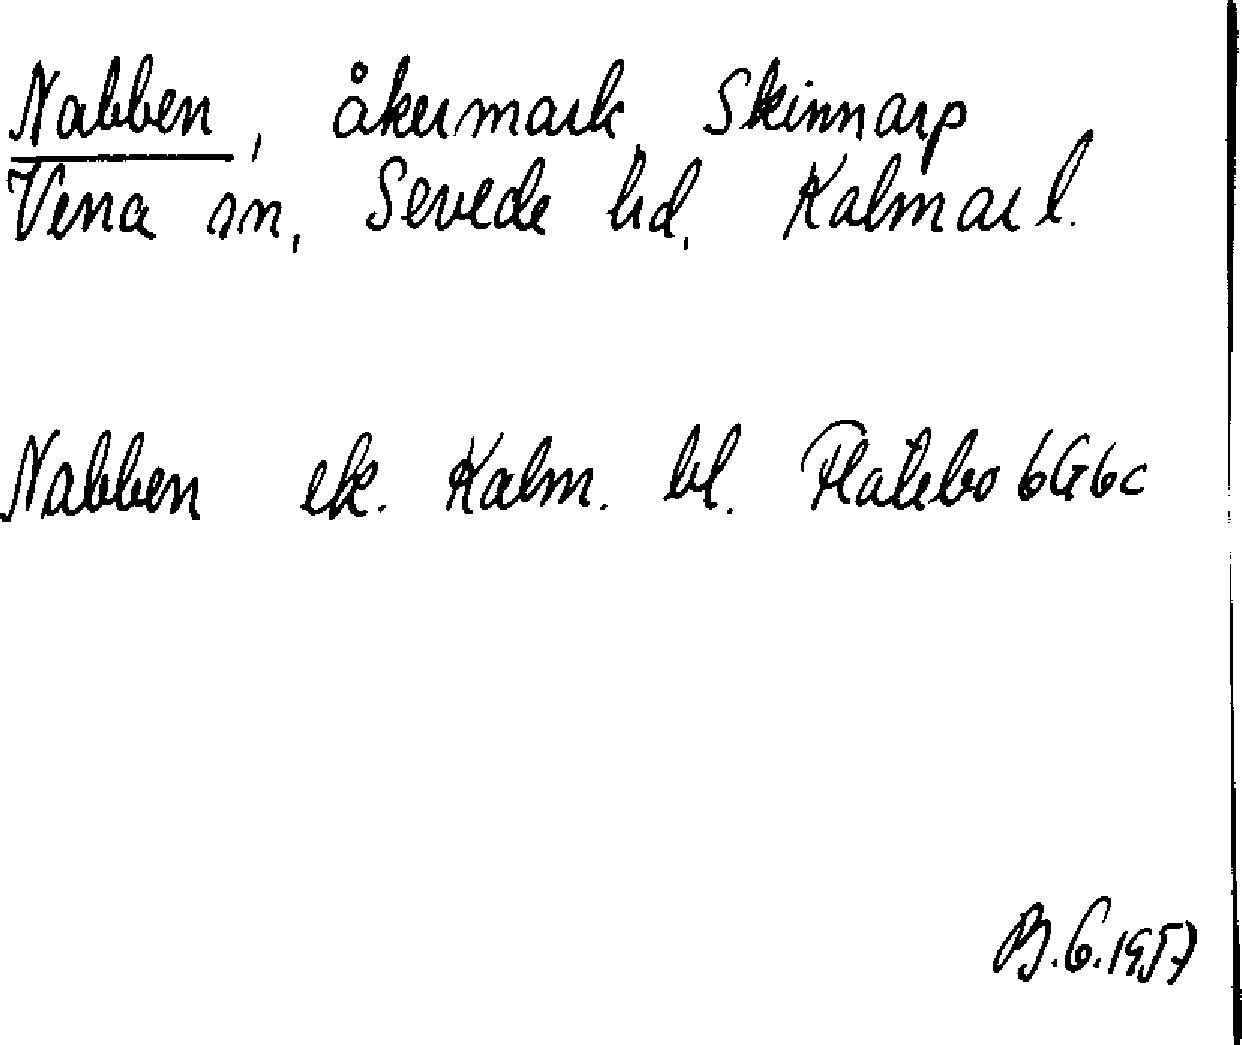 Nabben, åkermark Skinnarp
Vena sn, Sevede hd, Kalmar l.
Nabben ek. Kalm. bl. Flatebo 6G6c
B.G. 1957